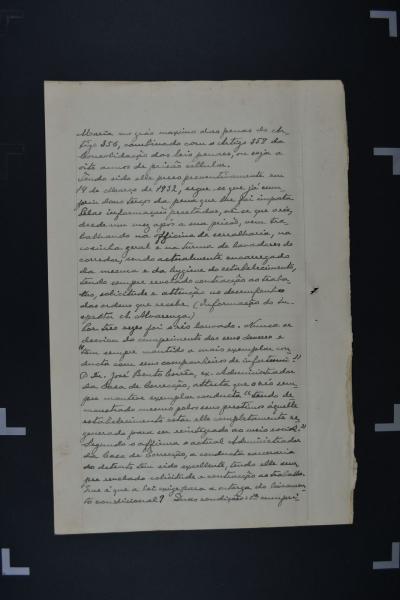 Maria no gráo maximo das penas do Ar-
tigo 356, combinado com o Artigo 358 da
Consolidação das leis penaes, ou seja a
oito annos de prisão cellular.
Tendo sido elle preso preventivamente em
14 de Março de 1932, segue-se que já cum-
priu dous terços da pena que lhe foi imposta
Pelas informações prestadas, vê-se que o réo,
desde um mez após a sua prisão, vem tra-
balhando na officina de serralheria, na
cosinha geral e na turma de lavadores do
corredor, sendo actualmente encarregado
da mecanica e da hygiene do estabelecimento,
tendo sempre revelado contracção ao traba-
lho, solicitude e attenção no desempenho
das ordens que recebe. (Informação do Ins-
pector ch. Alvarenga)
Por tres vezes foi o réo louvado. Nunca se
desviou do cumprimento dos seus deveres e
"tem sempre mantido a mais exemplar con-
ducta com seus companheiros de infortunio"
O Dr. José Bento Corrêa, ex-Administrador
da Casa de Correcção, attesta que o réo sem-
pre manteve exemplar conducta "tendo de-
monstrado mesmo pelos seus prestimos áquelle
estabelecimento estar elle completamente re-
generado para ser reintegrado ao meio social."
Segundo o affirma o actual Administrador
da Casa de Correcção, a conducta carceraria
do detento tem sido excellente, tendo elle sem-
pre revelado solicitude e contracção ao trabalho.
Que é que a lei exige para a outorga do livramen-
to condicional? Duas condições: 1ª cumpri-